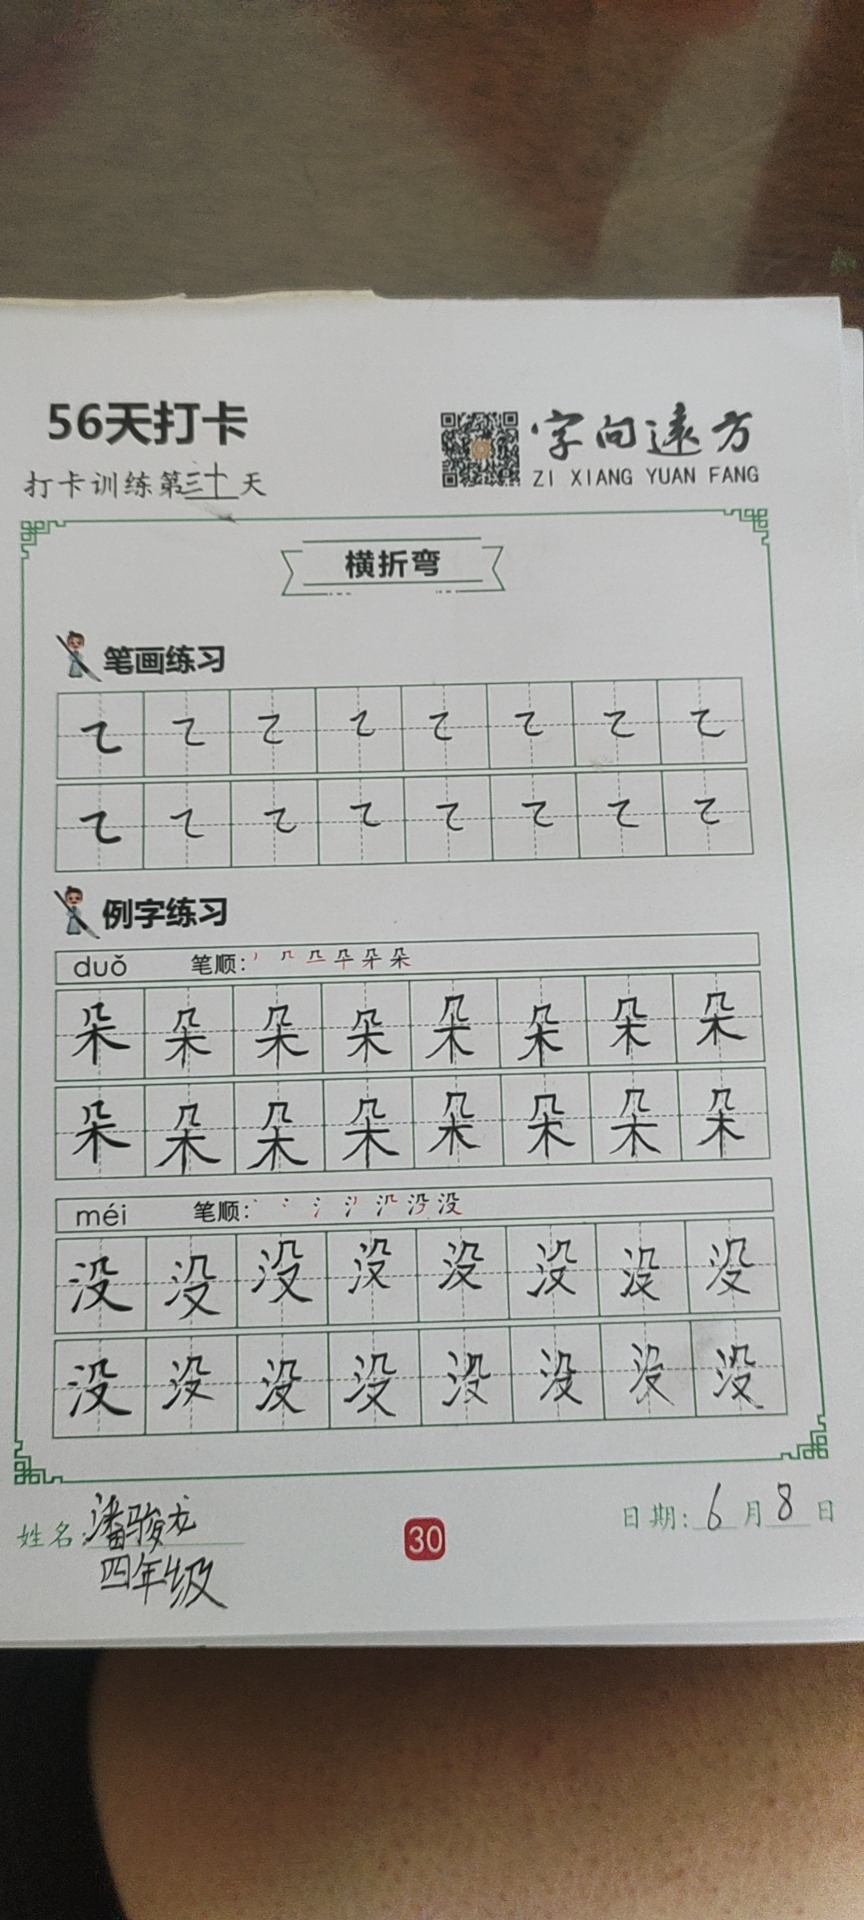 56天打卡
字向远方
打卡训练第三十天
ZI XIANG YUAN FANG
横折弯
笔画练习
㇍ ㇍ ㇍ ㇍ ㇍ ㇍ ㇍ ㇍
㇍ ㇍ ㇍ ㇍ ㇍ ㇍ ㇍ ㇍
例字练习
duǒ 笔顺:
朵 朵 朵 朵 朵 朵 朵 朵
朵 朵 朵 朵 朵 朵 朵 朵
méi 笔顺:
没 没 没 没 没 没 没 没
没 没 没 没 没 没 没 没
姓名:潘骏龙
四年级
30
日期:6月8日